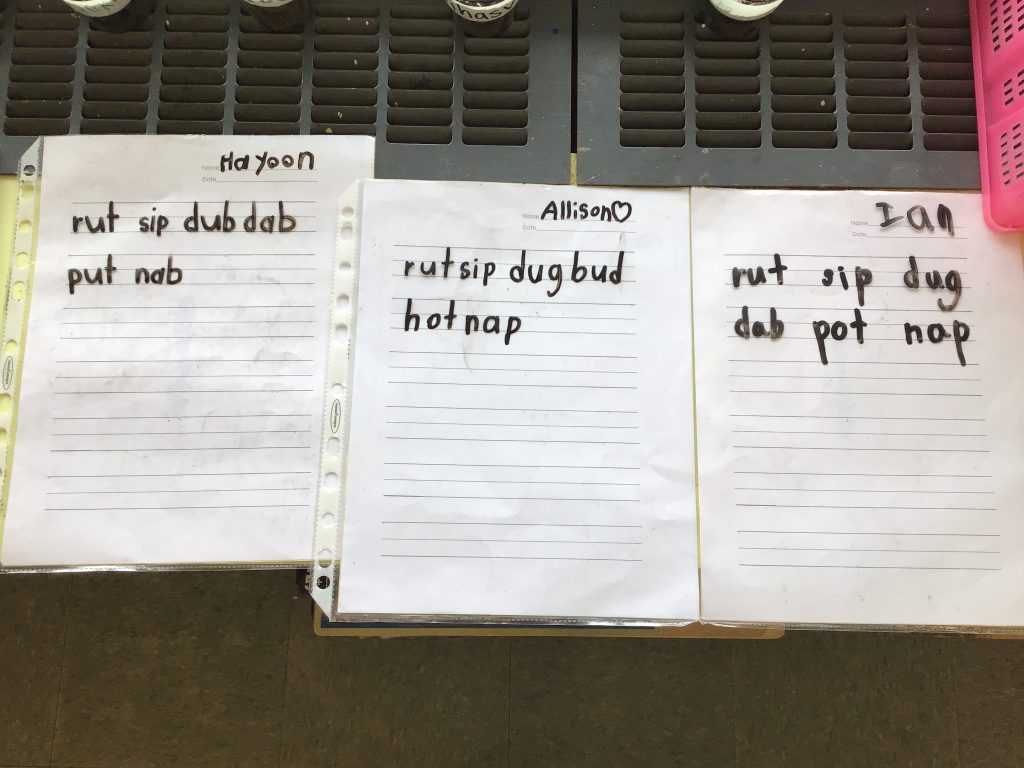 Name Hayoon
Date
rut sip dub dab
put nab
Name Allison♡
Date
rut sip dug bud
hot nap
Name Ian
Date
rut sip dug
dab pot nap